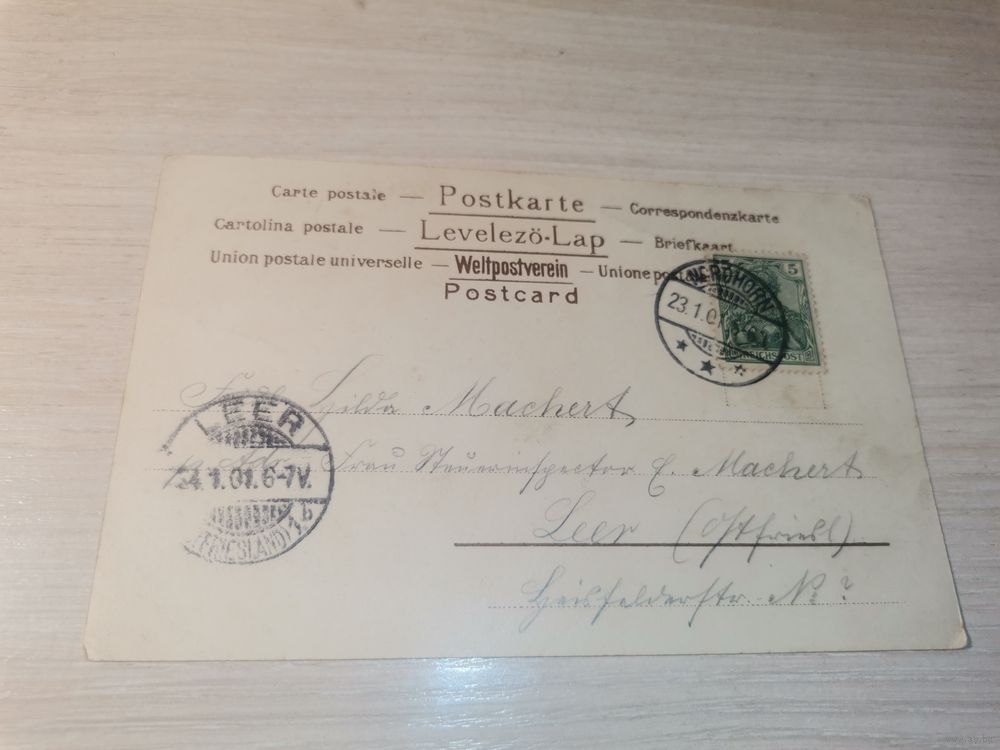 Carte postale — Postkarte — Correspondenzkarte
Cartolina postale — Levelező-Lap — Briefkaart
Union postale universelle — Weltpostverein — Unione postale
Postcard
5
REICHSPOST
NORDHORN
23.1.01
Hilda Machert
LEER
24.1.01.6-7V.
(OSTFRIESLAND) 1b
Frau Steuerinspector E. Machert
Leer (Ostfriesl)
Heisfelderstr. No. ?